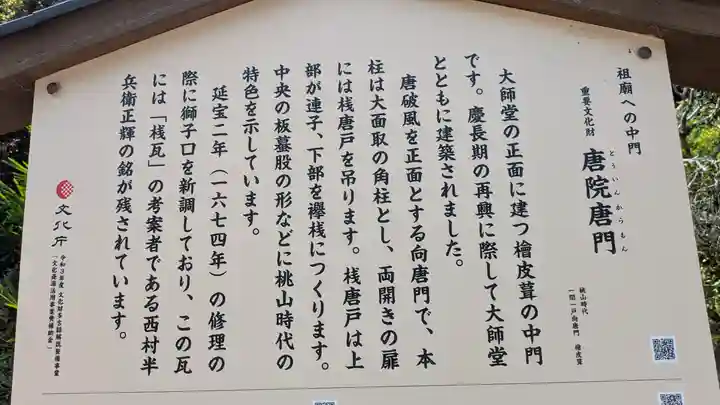 祖廟への中門
重要文化財
唐院唐門
とういんからもん
桃山時代
一間一戸向唐門 檜皮葺
大師堂の正面に建つ檜皮葺の中門
です。慶長期の再興に際して大師堂
とともに建築されました。
唐破風を正面とする向唐門で、本
柱は大面取の角柱とし、両開きの扉
には桟唐戸を吊ります。桟唐戸は上
部が連子、下部を襷桟につくります。
中央の板蟇股の形などに桃山時代の
特色を示しています。
延宝二年（一六七四年）の修理の
際に獅子口を新調しており、この瓦
には「桟瓦」の考案者である西村半
兵衛正輝の銘が残されています。
文化庁
令和3年度 文化財多言語解説整備事業
（文化資源活用事業費補助金）